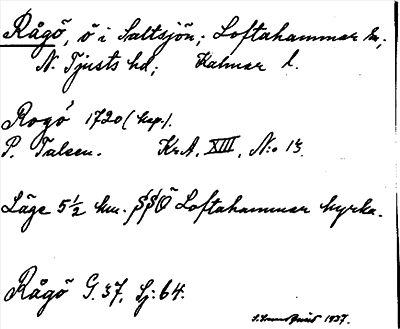 Rågö, ö i Saltsjön; Loftahammar sn;
N. Tjusts hd; Kalmar l.
Rogö 1720 (kop.).
P. Talsen. Kr.A. XIII, N:o 13.
Läge 5½ km. SSÖ Loftahammar kyrka.
Rågö G. 37, Sj: 64.
1937.